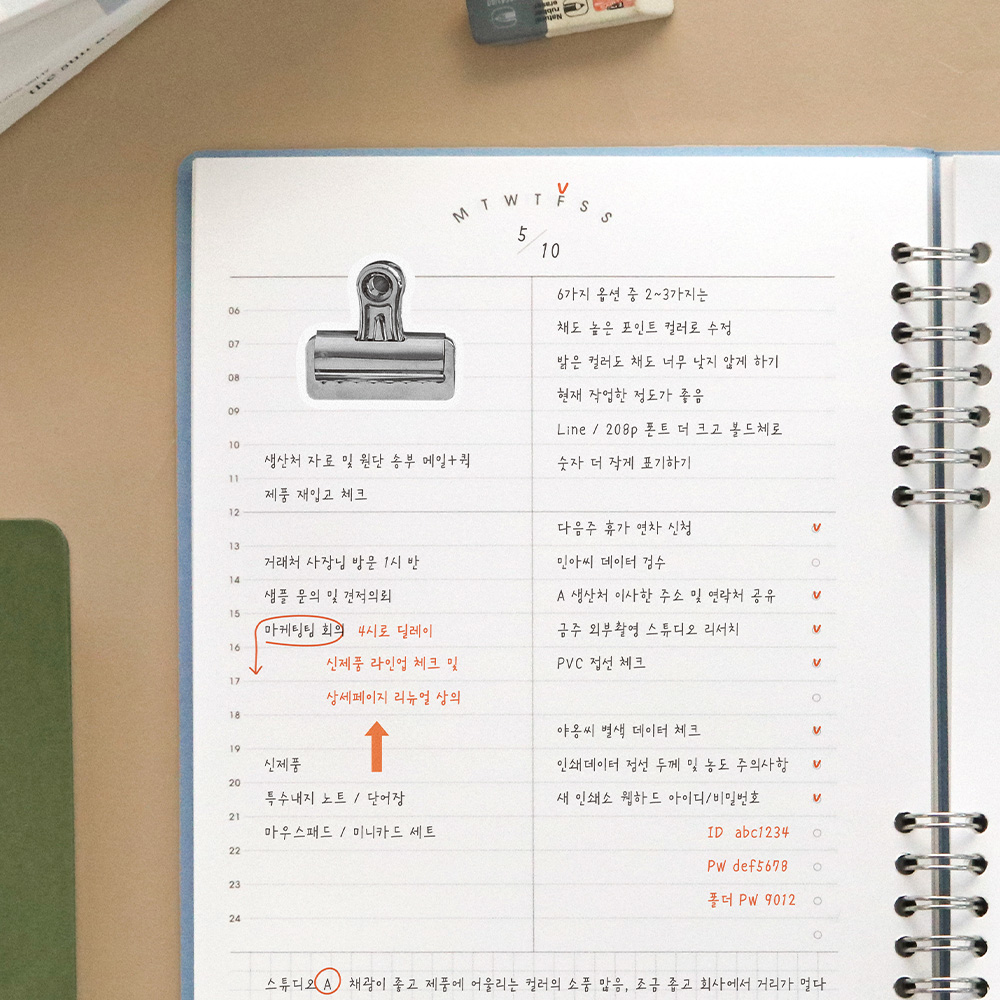 Natural
rubber
eraser
M T W T F S S
5/10
6가지 옵션 중 2~3가지는
채도 높은 포인트 컬러로 수정
밝은 컬러도 채도 너무 낮지 않게 하기
현재 작업한 정도가 좋음
Line / 208p 폰트 더 크고 볼드체로
숫자 더 작게 표기하기
06
07
08
09
10
생산처 자료 및 원단 송부 메일+퀵
11
제품 재입고 체크
12
13
거래처 사장님 방문 1시 반
14
샘플 문의 및 견적의뢰
15
마케팅팀 회의 4시로 딜레이
16
신제품 라인업 체크 및
17
상세페이지 리뉴얼 상의
18
19
신제품
20
특수내지 노트 / 단어장
21
마우스패드 / 미니카드 세트
22
23
24
다음주 휴가 연차 신청
민아씨 데이터 검수
A 생산처 이사한 주소 및 연락처 공유
금주 외부촬영 스튜디오 리서치
PVC 접선 체크
야옹씨 별색 데이터 체크
인쇄데이터 접선 두께 및 농도 주의사항
새 인쇄소 웹하드 아이디/비밀번호
ID abc1234
PW def5678
폴더 PW 9012
스튜디오 A 채광이 좋고 제품에 어울리는 컬러의 소품 많음, 조금 좁고 회사에서 거리가 멀다